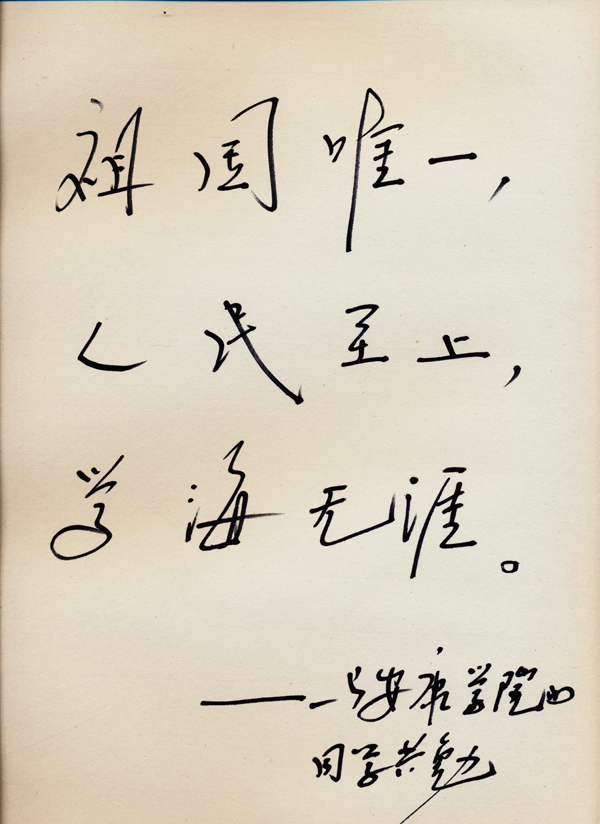 祖国唯一,
人民至上,
学海无涯。
——与安康学院的
同学共勉